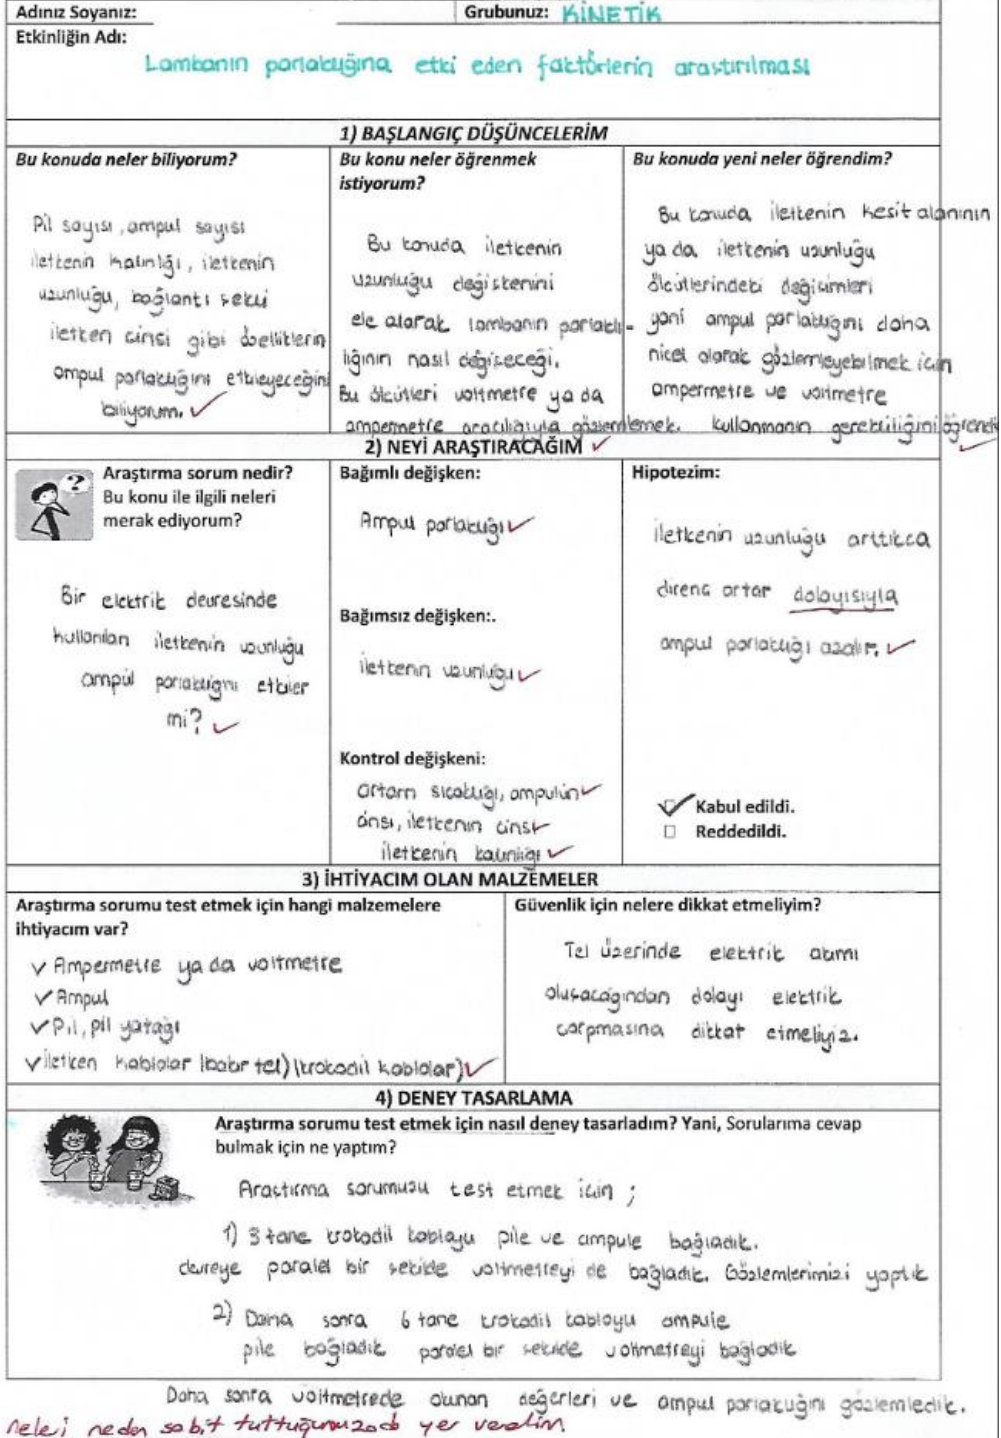 Adınız Soyanız:
Grubunuz: KİNETİK
Etkinliğin Adı:
Lambanın parlaklığına etki eden faktörlerin araştırılması
1) BAŞLANGIÇ DÜŞÜNCELERİM
Bu konuda neler biliyorum?
Pil sayısı, ampul sayısı
iletkenin kalınlığı, iletkenin
uzunluğu, bağlantı şekli
iletken cinsi gibi özelliklerin
ampul parlaklığını etkileyeceğini
biliyorum.
Bu konu neler öğrenmek
istiyorum?
Bu konuda iletkenin
uzunluğu değişkenini
ele alarak lambanın parlaklı-
lığının nasıl değişeceği.
Bu ölçütleri voltmetre ya da
ampermetre aracılığıyla gözlemlemek.
Bu konuda yeni neler öğrendim?
Bu konuda iletkenin kesit alanının
ya da iletkenin uzunluğu
ölçütlerindeki değişimleri
yani ampul parlaklığını daha
nicel olarak gözlemleyebilmek için
ampermetre ve voltmetre
kullanmanın gerekliliğini öğrendi
2) NEYİ ARAŞTIRACAĞIM
Araştırma sorum nedir?
Bu konu ile ilgili neleri
merak ediyorum?
Bir elektrik devresinde
kullanılan iletkenin uzunluğu
ampül parlaklığını etkiler
mi?
Bağımlı değişken:
Ampul parlaklığı
Bağımsız değişken:.
iletkenin uzunluğu
Kontrol değişkeni:
ortam sıcaklığı, ampulün
cinsi, iletkenin cinsi
iletkenin kalınlığı
Hipotezim:
iletkenin uzunluğu arttıkca
direnc artar dolayısıyla
ampul parlaklığı azalır.
Kabul edildi.
Reddedildi.
3) İHTİYACIM OLAN MALZEMELER
Araştırma sorumu test etmek için hangi malzemelere
ihtiyacım var?
Ampermetre ya da voltmetre
Ampul
Pil, pil yatağı
iletken kablolar (bakır tel) (krokodil kablolar)
Güvenlik için nelere dikkat etmeliyim?
Tel üzerinde elektrik akımı
oluşacağından dolayı elektrik
çarpmasına dikkat etmeliyiz.
4) DENEY TASARLAMA
Araştırma sorumu test etmek için nasıl deney tasarladım? Yani, Sorularıma cevap
bulmak için ne yaptım?
Araştırma sorumuzu test etmek için ;
1) 3 tane krokodil kabloyu pile ve ampule bağladık.
devreye paralel bir şekilde voltmetreyi de bağladık. Gözlemlerimizi yaptık
2) Daha sonra 6 tane krokodil kabloyu ampule
pile bağladık paralel bir şekilde voltmetreyi bağladık
Daha sonra voltmetrede okunan değerleri ve ampul parlaklığını gözlemledik.
neleri neden sabit tuttuğumuzada yer verelim